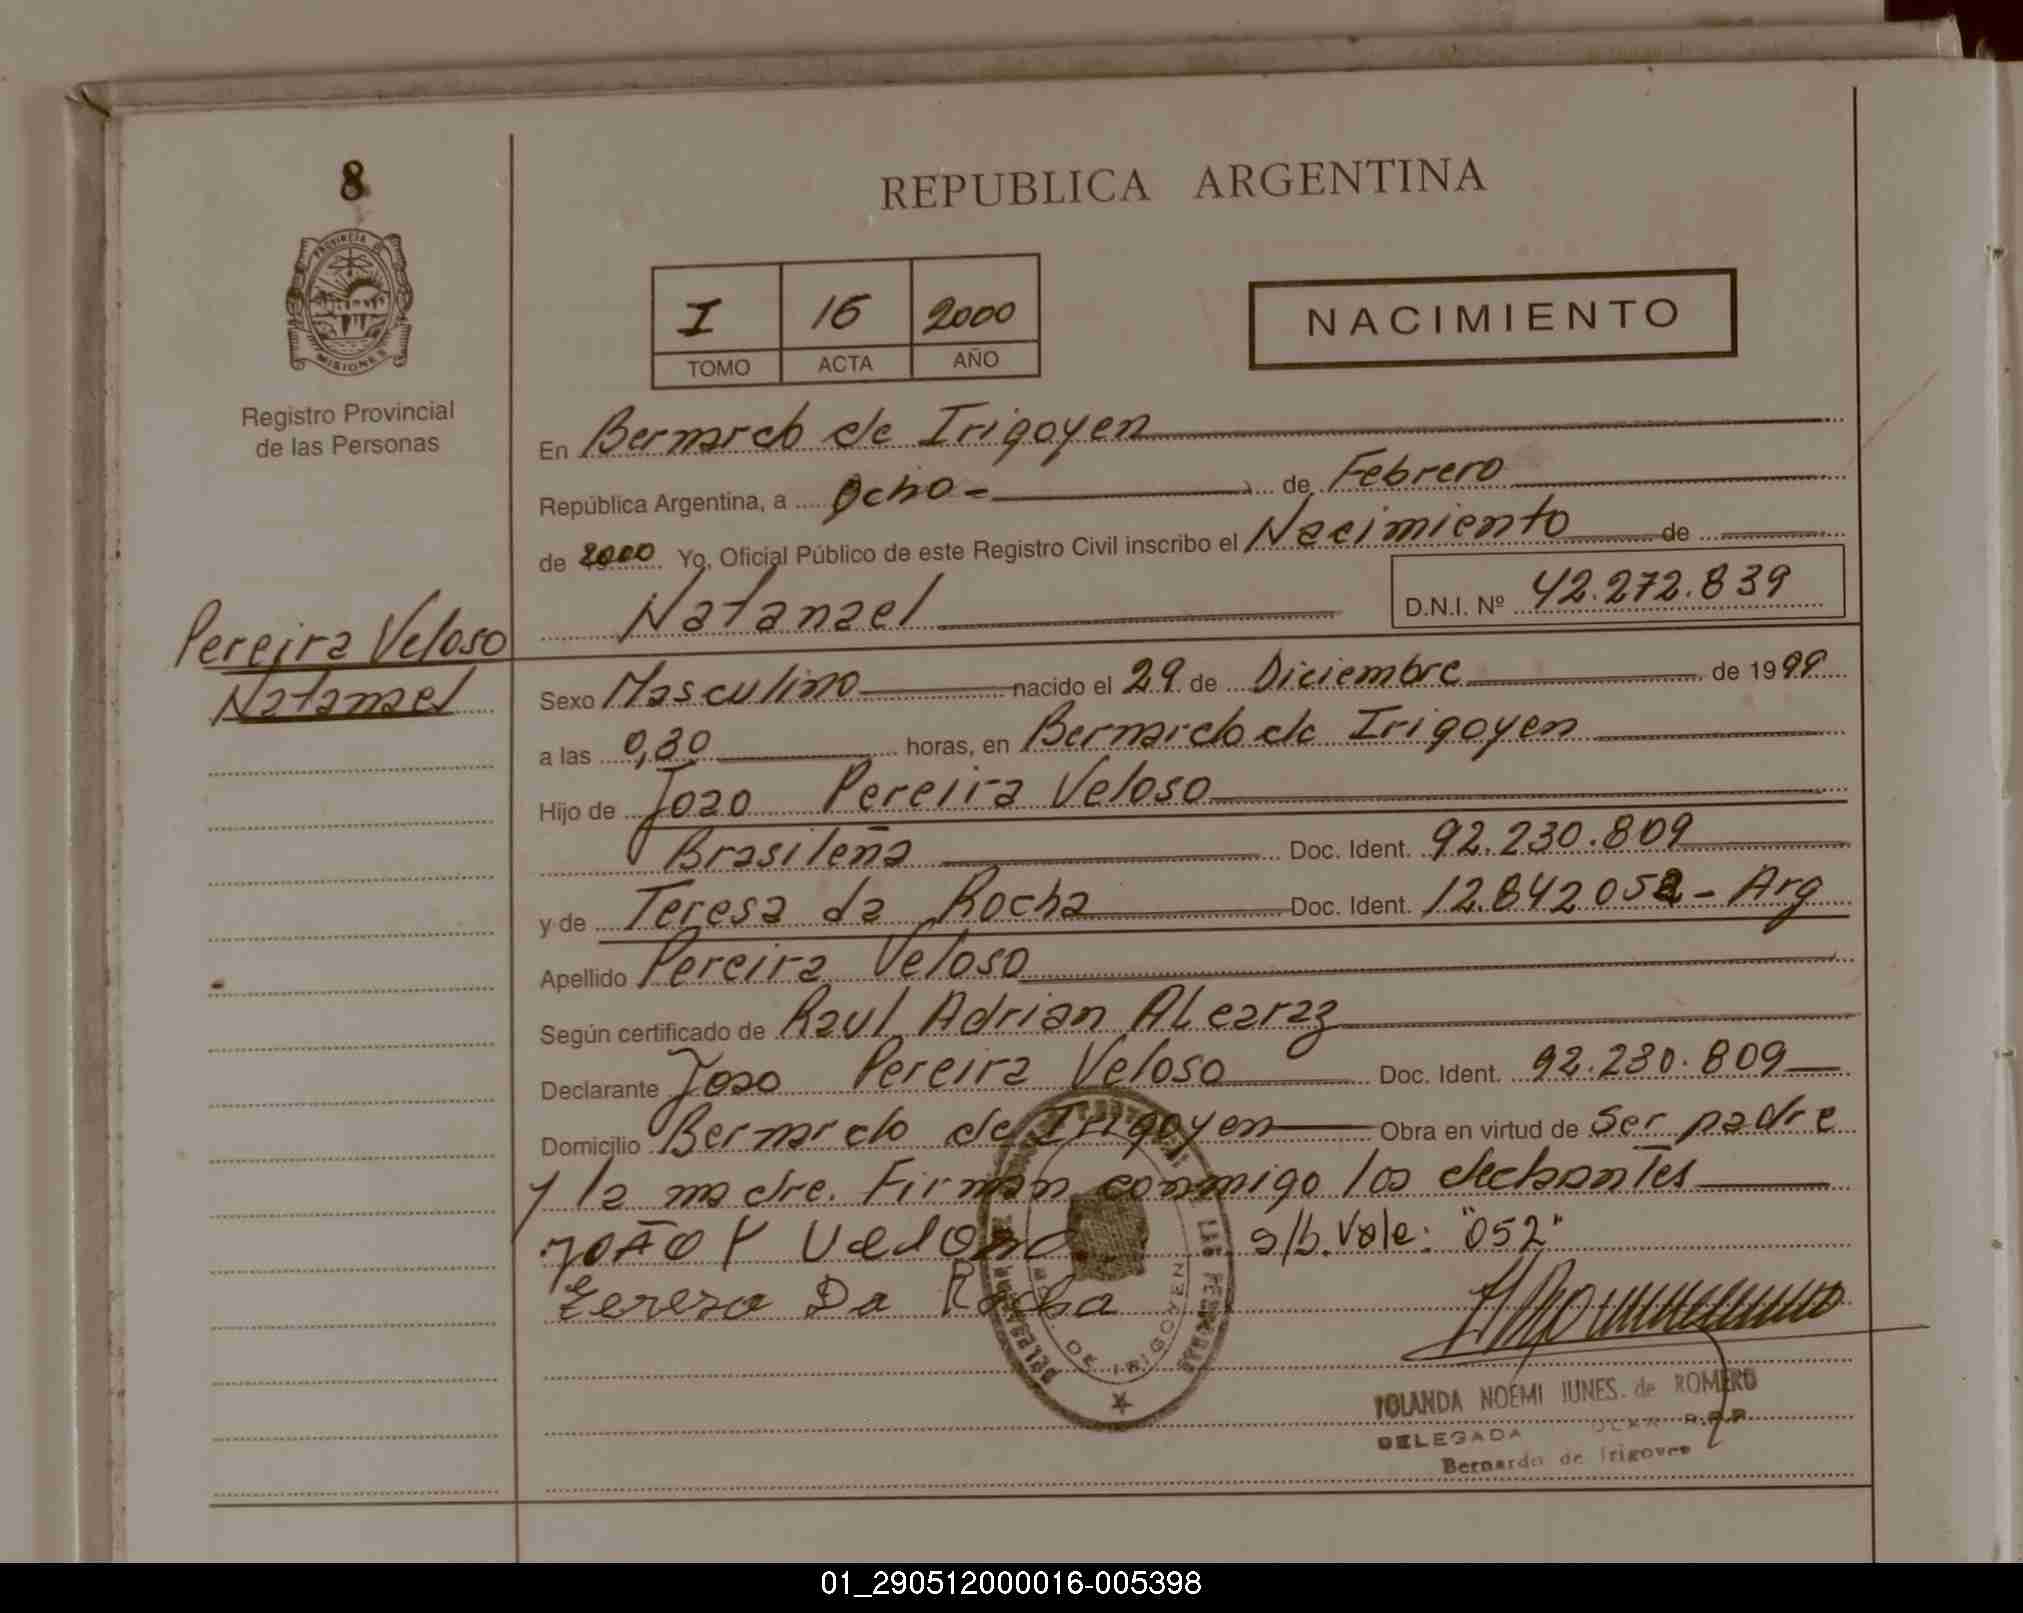 8
PROVINCIA DE
MISIONES
Registro Provincial
de las Personas
REPUBLICA ARGENTINA
I 16 2000
TOMO ACTA AÑO
NACIMIENTO
En Bernardo de Irigoyen
República Argentina, a Ocho de Febrero
de 2000 Yo, Oficial Público de este Registro Civil inscribo el Nacimiento de
Natanael D.N.I. Nº 42.272.839
Pereira Veloso
Natanael
Sexo Masculino nacido el 29 de Diciembre de 1999
a las 0,30 horas, en Bernardo de Irigoyen
Hijo de Joao Pereira Veloso
Brasileña Doc. Ident. 92.230.809
y de Teresa da Rocha Doc. Ident. 12.842052 - Arg
Apellido Pereira Veloso
Según certificado de Raul Adrian ALcaraz
Declarante Joao Pereira Veloso Doc. Ident. 92.230.809
Domicilio Bernardo de Irigoyen Obra en virtud de Ser padre
y la madre. Firman conmigo los
JOÃO P Veloso s/b. Vale: "052"
Tereza Da Rocha
DE IRIGOYEN
YOLANDA NOEMI JUNES de ROMERO
DELEGADA R.P.P.
Bernardo de Irigoyen
01_290512000016-005398